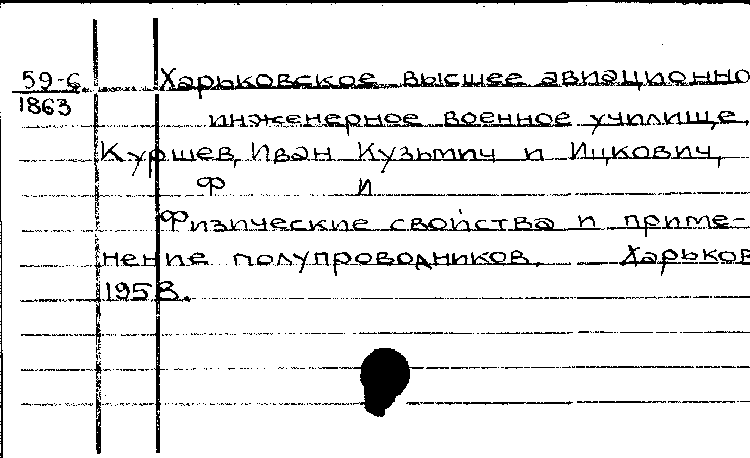 59-6 Харьковское высшее авиационно
1863 инженерное военное училище.
Куршев, Иван Кузьмич и Ицкович,
Ф И
Физические свойства и приме-
нение полупроводников. Харьков
1958.